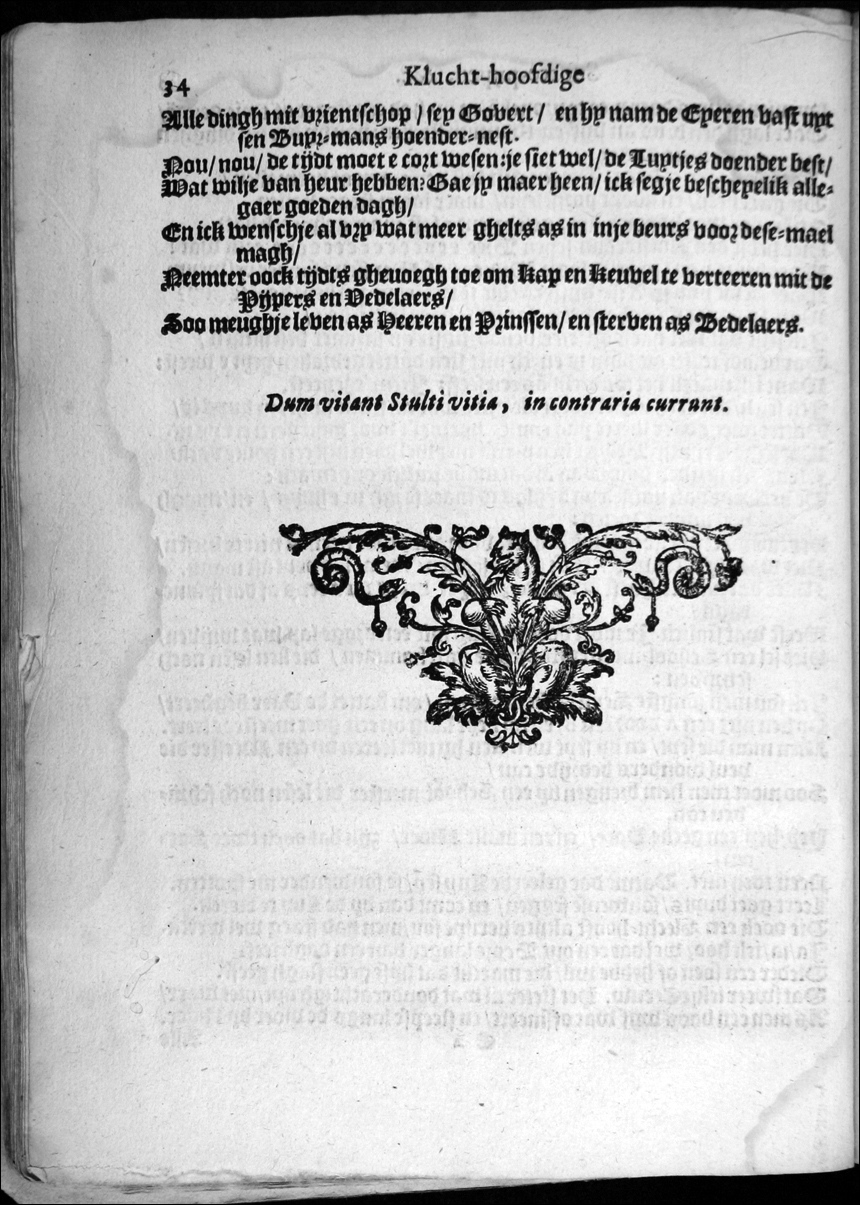 34
Klucht-hoofdige
Alle dingh mit vrientschop / sey Govert / en hy nam de Eyeren vast uyt
sen Buyr-mans hoender-nest.
Nou/ nou/ de tijdt moet e cort wesen: je siet wel/ de Luytjes doender best/
Wat wilje van heur hebben? Gae jy maer heen/ ick seg je bescheyelik alle-
gaer goeden dagh/
En ick wenschje al vry wat meer ghelts as in inje beurs voor dese-mael
magh/
Neemter oock tijdts ghenoegh toe om Kap en Keuvel te verteeren mit de
Pijpers en Vedelaers/
Soo meughje leven as Heeren en Prinssen/ en sterven as Bedelaers.
Dum vitant Stulti vitia, in contraria currunt.